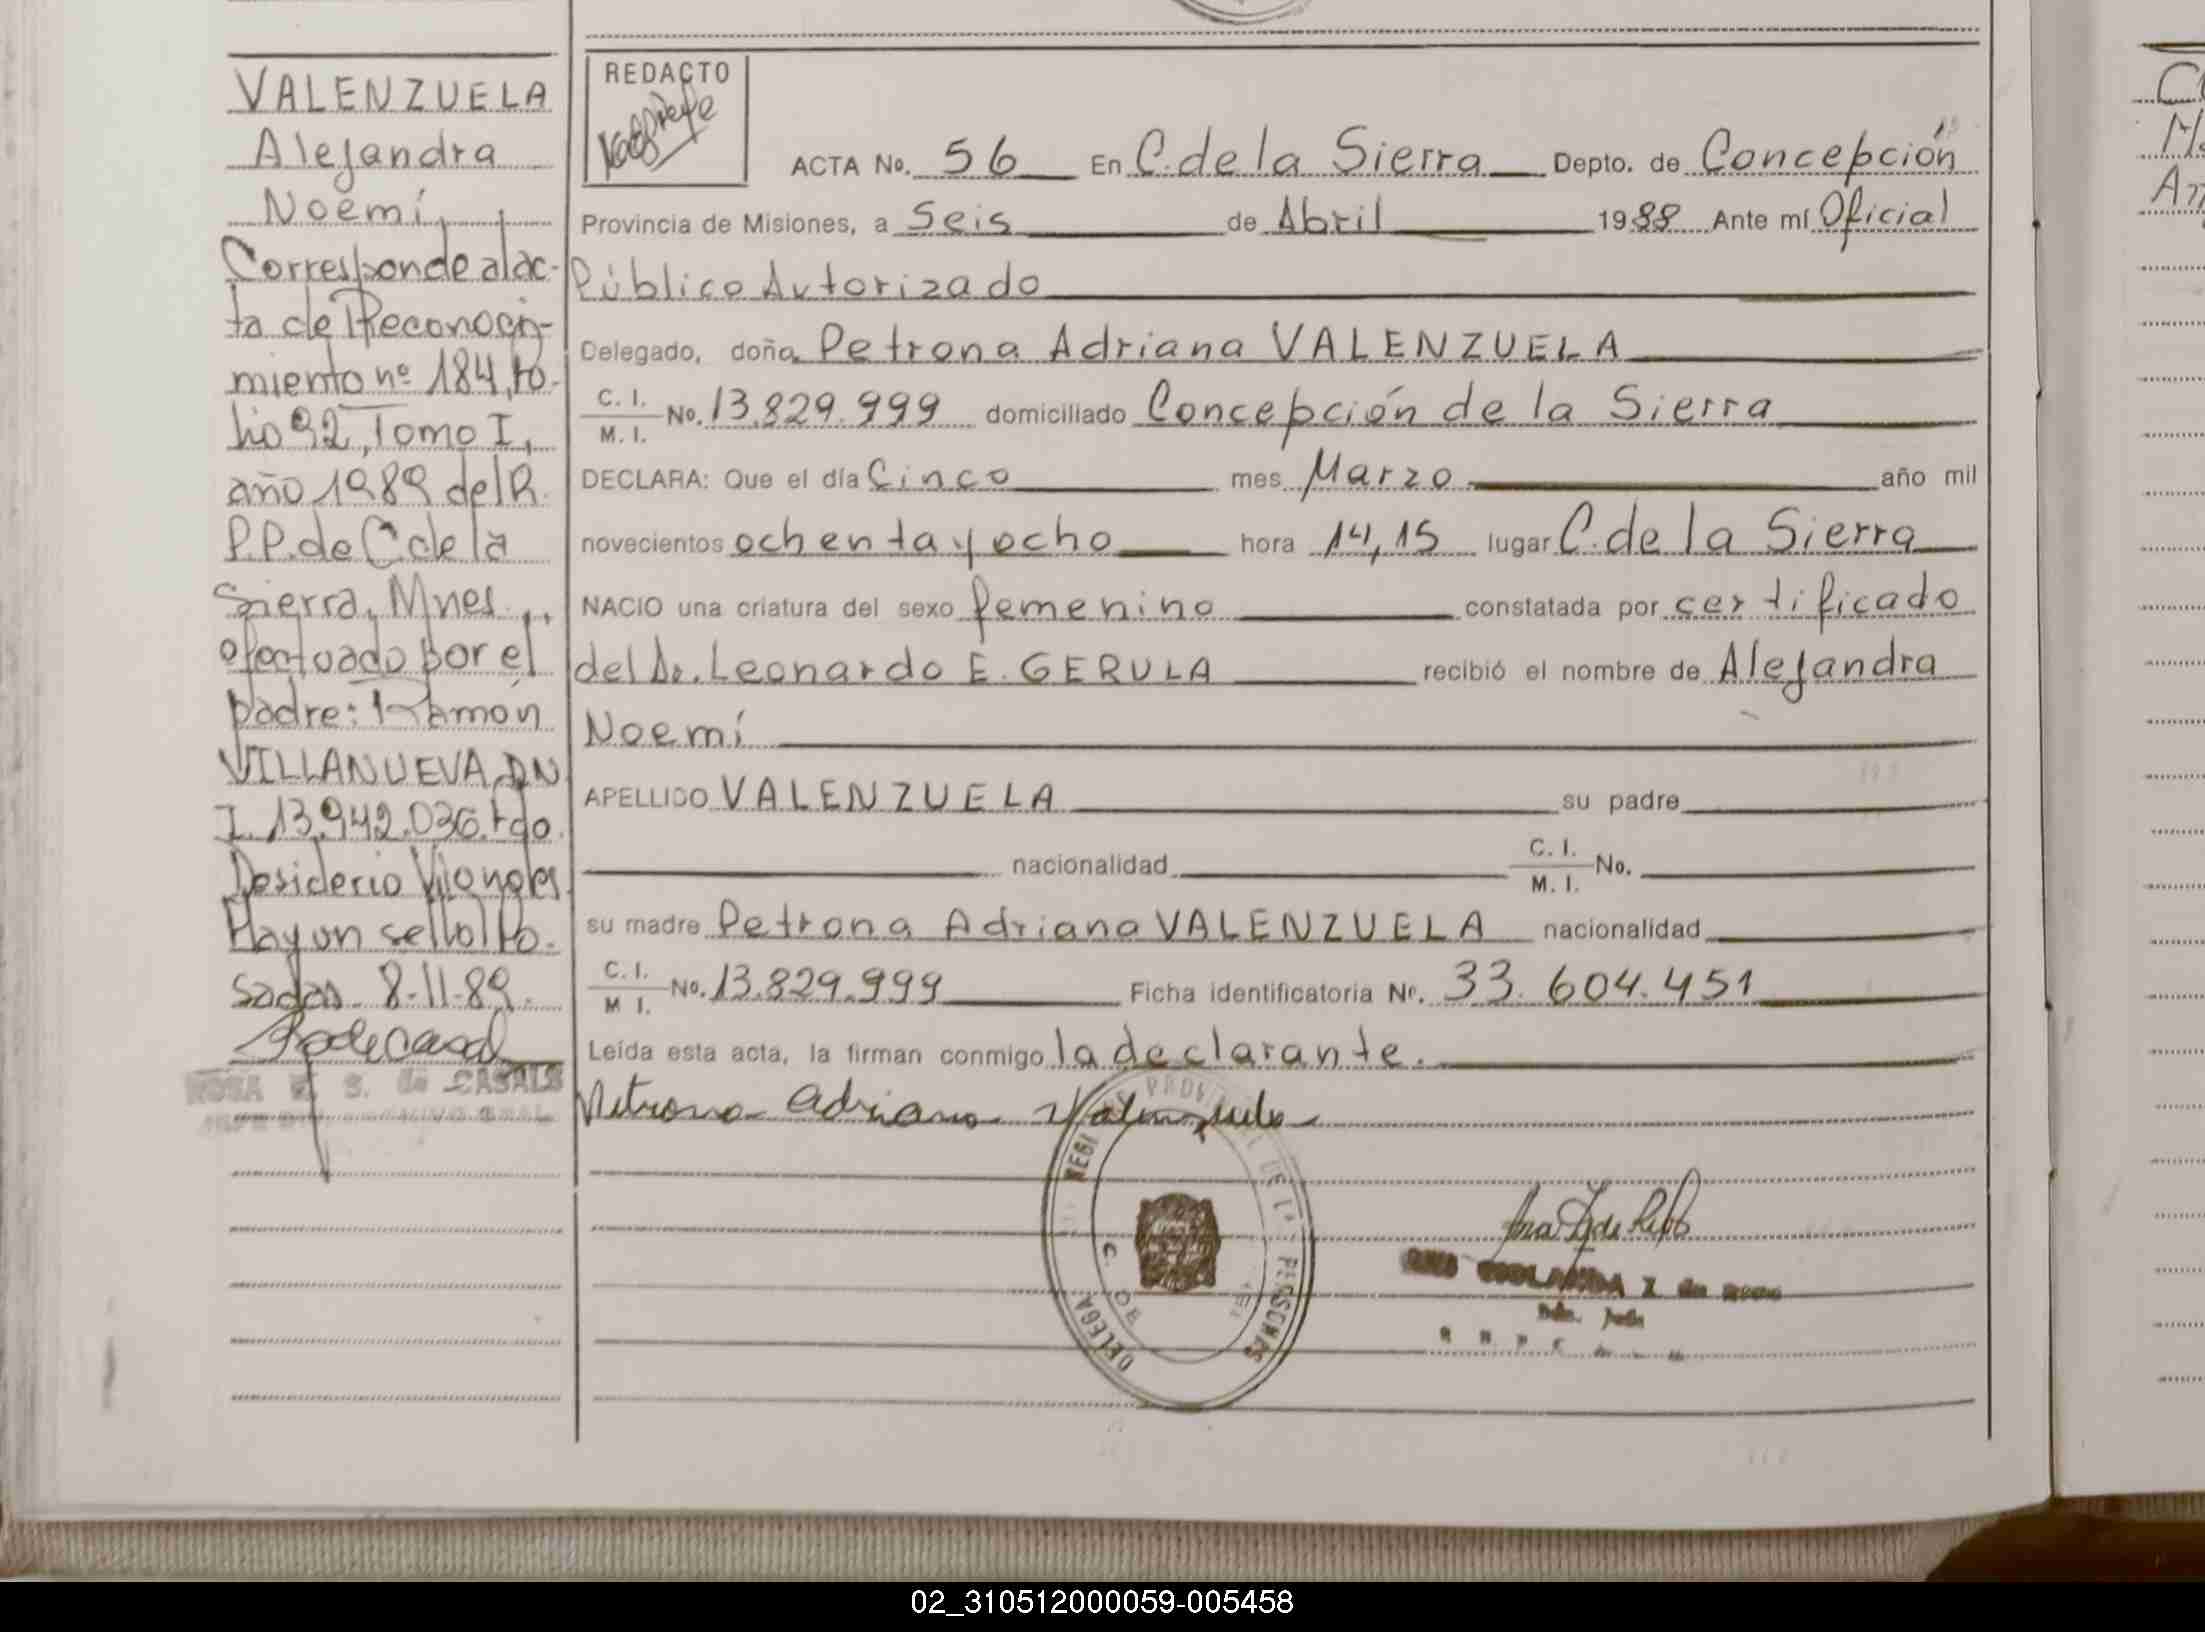 VALENZUELA
Alejandra
Noemí
Corresponde al ac-
ta de Reconoci-
miento nº 184, fo-
lio 92, Tomo I,
año 1989 del R.
P.P. de C. de la
Sierra, Mnes.,
efectuado por el
padre: Ramón
VILLANUEVA, DN
I. 13.942.036. fdo.
Desiderio
Hay un sello. Po-
sadas 8-11-89.
ROSA S. de CASALS
REDACTO
ACTA No. 56 En C. de la Sierra Depto. de Concepción
Provincia de Misiones, a Seis de Abril 1988 Ante mí Oficial
Público Autorizado
Delegado, doña Petrona Adriana VALENZUELA
C. I.
M. I.
No. 13.829.999 domiciliado Concepción de la Sierra
DECLARA: Que el día Cinco mes Marzo año mil
novecientos ochenta y ocho hora 14,15 lugar C. de la Sierra
NACIO una criatura del sexo femenino constatada por certificado
del Dr. Leonardo E. GERULA recibió el nombre de Alejandra
Noemí
APELLIDO VALENZUELA su padre
nacionalidad C. I.
M. I.
No.
su madre Petrona Adriana VALENZUELA nacionalidad
C. I.
M I.
No. 13.829.999 Ficha identificatoria Nº. 33.604.451
Leída esta acta, la firman conmigo la declarante.
Petrona Adriana Valenzuela
02_310512000059-005458